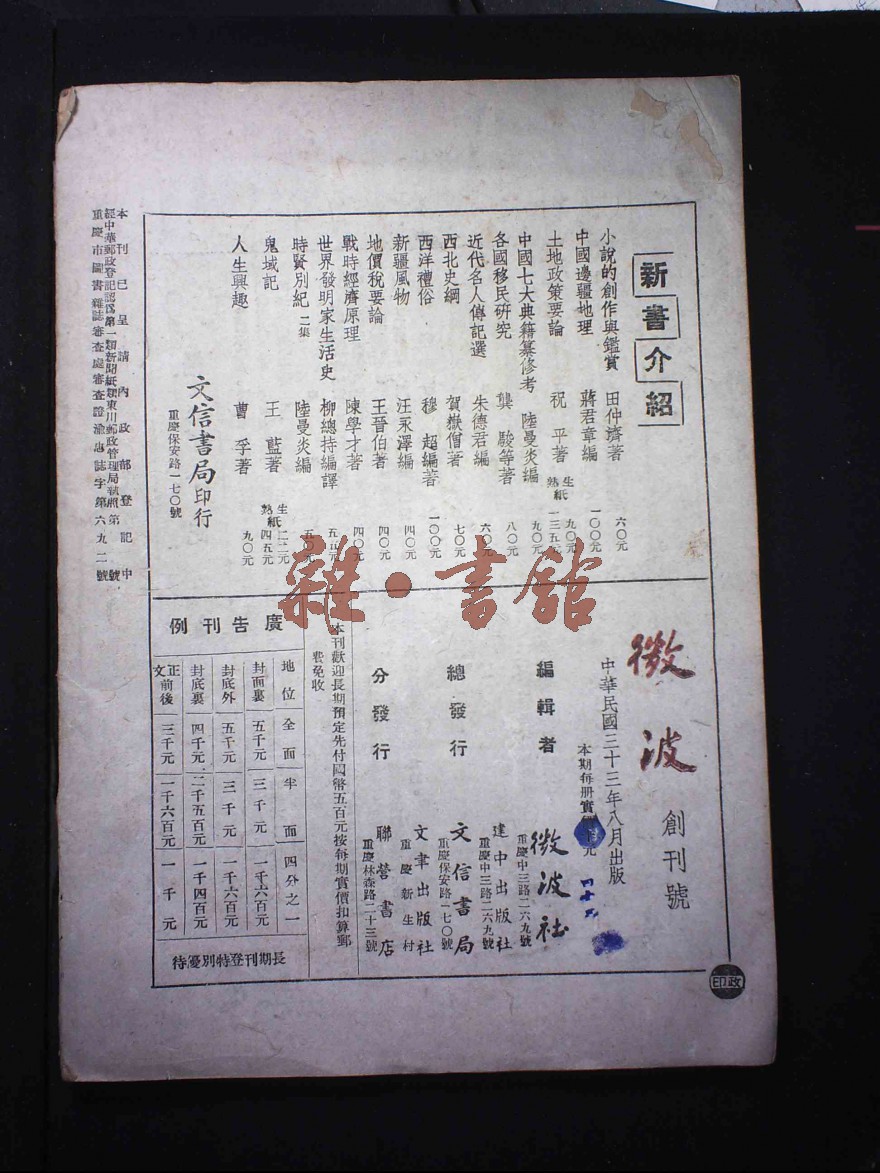 新書介紹
小說的創作與鑑賞 田仲濟著 六〇元
中國邊疆地理 蔣君章編 一〇〇元
土地政策要論 祝 平著 生紙 九〇元 熟紙 一三五元
中國七大典籍纂修考 陸曼炎編 九〇元
各國移民研究 龔 駿等著 八〇元
近代名人傳記選 朱德君編 六〇元
西北史綱 賀嶽僧著 七〇元
西洋禮俗 穆 超編著 一〇〇元
新疆風物 汪永澤編 四〇元
地價稅要論 王晉伯著 四〇元
戰時經濟原理 陳學才著 四〇元
世界發明家生活史 柳總持編譯 五五元
時賢別紀 二集 陸曼炎編 五〇元
鬼域記 王 藍著 生紙 二二元 熟紙 四五元
人生興趣 曹 孚著 九〇元
文信書局印行
重慶保安路一七〇號
微波 創刊號
中華民國三十三年八月出版
本期每册實價 元
四十元
編輯者 微波社
重慶中三路二六九號
總發行 建中出版社
重慶中三路二六九號
文信書局
重慶保安路一七〇號
分發行 文聿出版社
重慶新生村
聯營書店
重慶林森路二十三號
本刊歡迎長期預定先付國幣五百元按每期實價扣算郵
費免收
廣告刊例
地位 全面 半面 四分之一
封面裏 五千元 三千元 一千六百元
封底外 五千元 三千元 一千六百元
封底裏 四千元 二千五百元 一千四百元
正文前後 三千元 一千六百元 一千元
長期刊登特別優待
本刊已呈請內政部登記中
經中華郵政登記認爲第一類新聞紙類東川郵政管理局執照第 號
重慶市圖書雜誌審查處審查證渝忠誌字第六九二號
政印
雜·書館